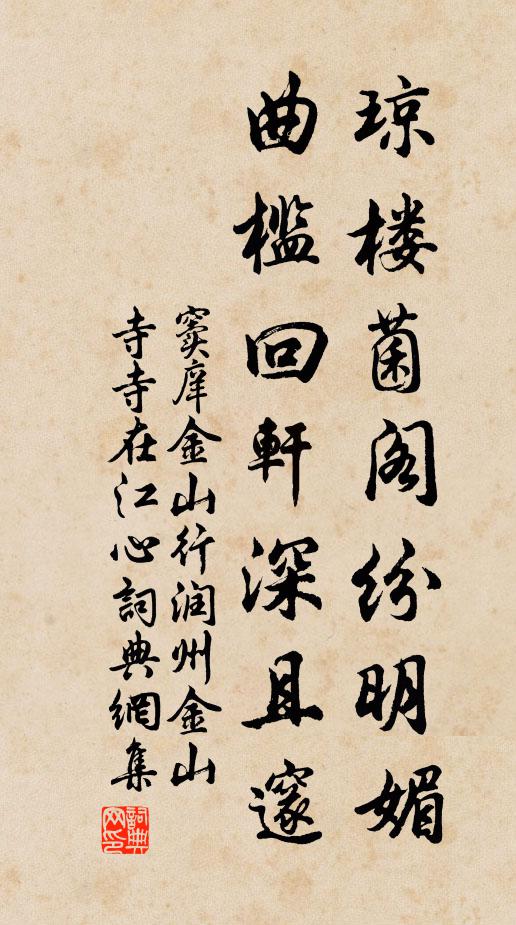 琼楼菌阁纷明媚
曲槛回軒深且邃
窦庠金山行润州金山
寺寺在江心詞典網集
詞典网印